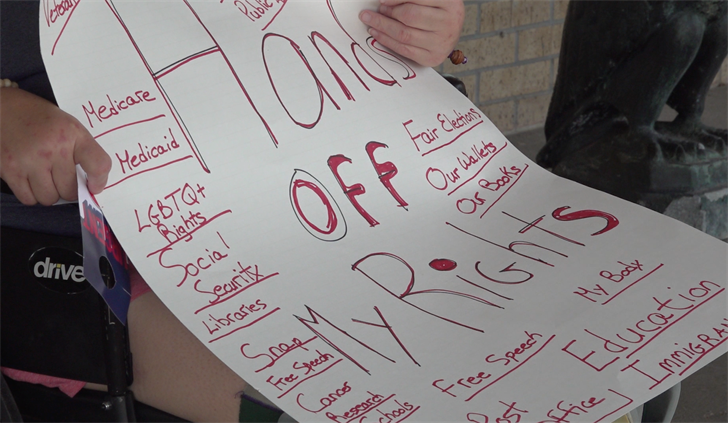 Veterans
Public
Hands
OFF
My Rights
Medicare
Medicaid
LGBTQ+
Rights
Social
Security
Libraries
Snap
Free Speech
Cancer
Research
Schools
Fair Elections
Our Wallets
Our Books
My Body
Free Speech
Post
Office
Education
IMMIGRA
drive